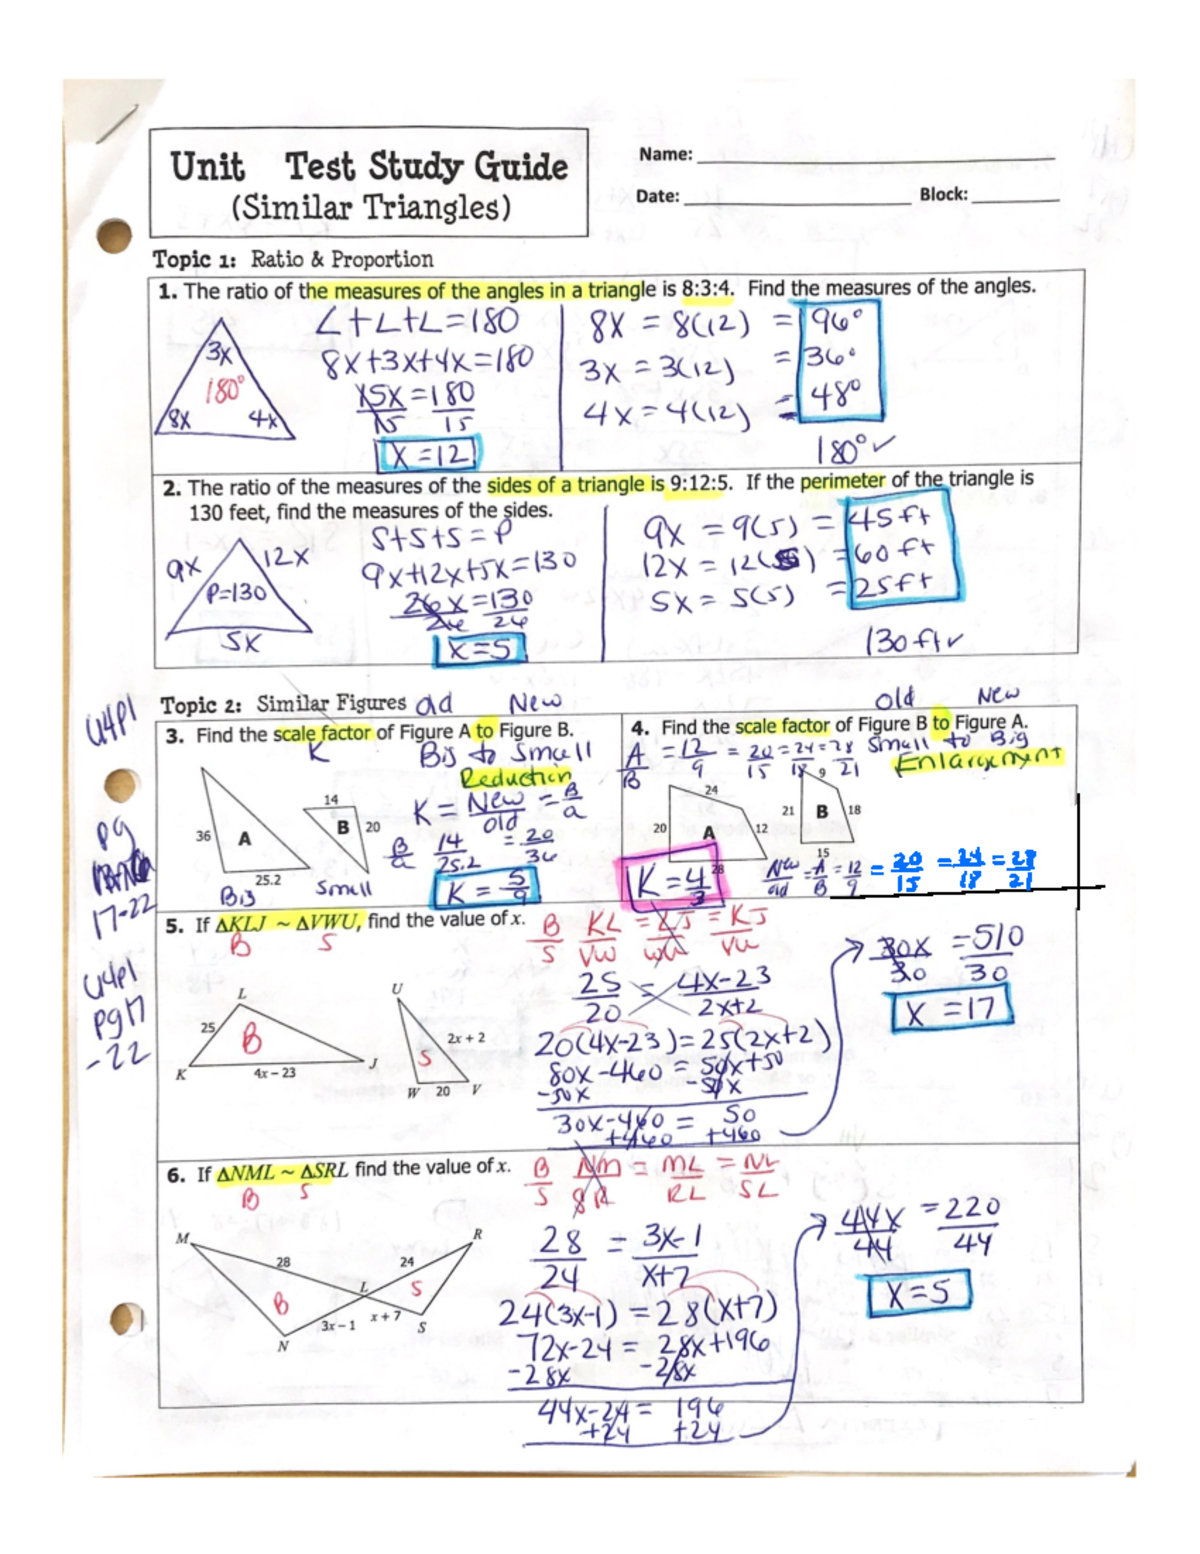 Unit Test Study Guide
(Similar Triangles)
Name:
Date: Block:
Topic 1: Ratio & Proportion
1. The ratio of the measures of the angles in a triangle is 8:3:4. Find the measures of the angles.
3x
180°
8x 4x
∠+∠+∠=180
8x+3x+4x=180
15x=180
15 15
x=12
8x = 8(12) = 96°
3x = 3(12) = 36°
4x = 4(12) = 48°
180° ✓
2. The ratio of the measures of the sides of a triangle is 9:12:5. If the perimeter of the triangle is
130 feet, find the measures of the sides.
9x 12x
P=130
5x
S+S+S=P
9x+12x+5x=130
26x=130
26 26
x=5
9x = 9(5) = 45ft
12x = 12(5) = 60ft
5x = 5(5) = 25ft
130ft ✓
U4P1
pg
17-22
U4P1
pg17
-22
Topic 2: Similar Figures
old New
3. Find the scale factor of Figure A to Figure B.
K Big to Small
Reduction
K = New = B
old a
14
36 A B 20
25.2
Big Small
B 14 = 20
a 25.2 36
K = 5
9
Old New
4. Find the scale factor of Figure B to Figure A.
A = 12 = 20 = 24 = 28 Small to Big
B 9 15 18 21 Enlargement
24 9
20 A 12 21 B 18
28 15
K = 4
3
New = A = 12 = 20 = 24 = 28
old B 9 15 18 21
5. If ΔKLJ ~ ΔVWU, find the value of x.
B S
L
25 B
K 4x – 23 J
U
2x + 2
S
W 20 V
B KL = LJ = KJ
S VW WU VU
25 = 4x-23
20 2x+2
20(4x-23)=25(2x+2)
80x-460 = 50x+50
-50x -50x
30x-460 = 50
+460 +460
30x = 510
30 30
x = 17
6. If ΔNML ~ ΔSRL find the value of x.
B S
M 28 24 R
L
B S
3x – 1 x + 7
N S
B NM = ML = NL
S SR RL SL
28 = 3x-1
24 x+7
24(3x-1) = 28(x+7)
72x-24 = 28x+196
-28x -28x
44x-24 = 196
+24 +24
44x = 220
44 44
x=5